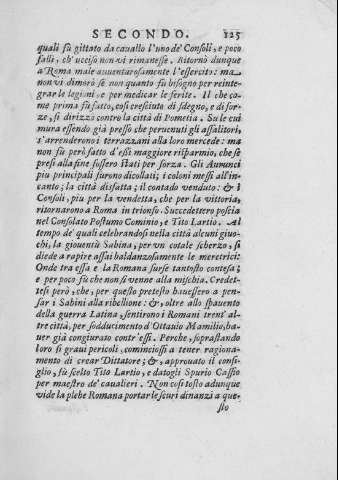 SECONDO. 125
quali fù gittato da cauallo l'uno de' Consoli, e poco
falli, ch'ucciso non vi rimanesse. Ritornò dunque
a Roma male auuenturosamente l'essercito: ma
non vi dimorò se non quanto fù bisogno per reinte-
grar le legioni, e per medicar le ferite. Il che co-
me prima fù fatto, così cresciuto di sdegno, e di for-
ze, si dirizzò contro la città di Pometia. Su le cui
mura essendo già presso che peruenuti gli assalitori,
s'arrenderono i terrazzani alla loro mercede: ma
non fù però fatto d'essi maggiore risparmio, che se
presi alla fine fossero stati per forza. Gli Aurunci
piu principali furono dicollati; i coloni messi all'in-
canto; la città disfatta; il contado venduto: & i
Consoli, piu per la vendetta, che per la vittoria,
ritornarono a Roma in trionfo. Succedettero poscia
nel Consolato Postumo Cominio, e Tito Lartio. Al
tempo de' quali celebrandosi nella città alcuni giuo-
chi, la giouentù Sabina, per vn cotale scherzo, si
diede a rapire assai baldanzosamente le meretrici:
Onde tra essa e la Romana surse tantosto contesa;
e per poco fù che non si venne alla mischia. Credet-
tesi però, che, per questo pretesto hauessero a pen-
sar i Sabini alla ribellione: &, oltre allo spauento
della guerra Latina, sentirono i Romani trent'al-
tre città, per sodducimento d'Ottauio Mamilio, ha-
uer già congiurato contr'essi. Perche, soprastando
loro sì graui pericoli, cominciossi a tener ragiona-
mento di crear Dittatore; &, approuato il consi-
glio, fù scelto Tito Lartio, e datogli Spurio Cassio
per maestro de' caualieri. Non così tosto adunque
vide la plebe Romana portar le scuri dinanzi a que-
sto